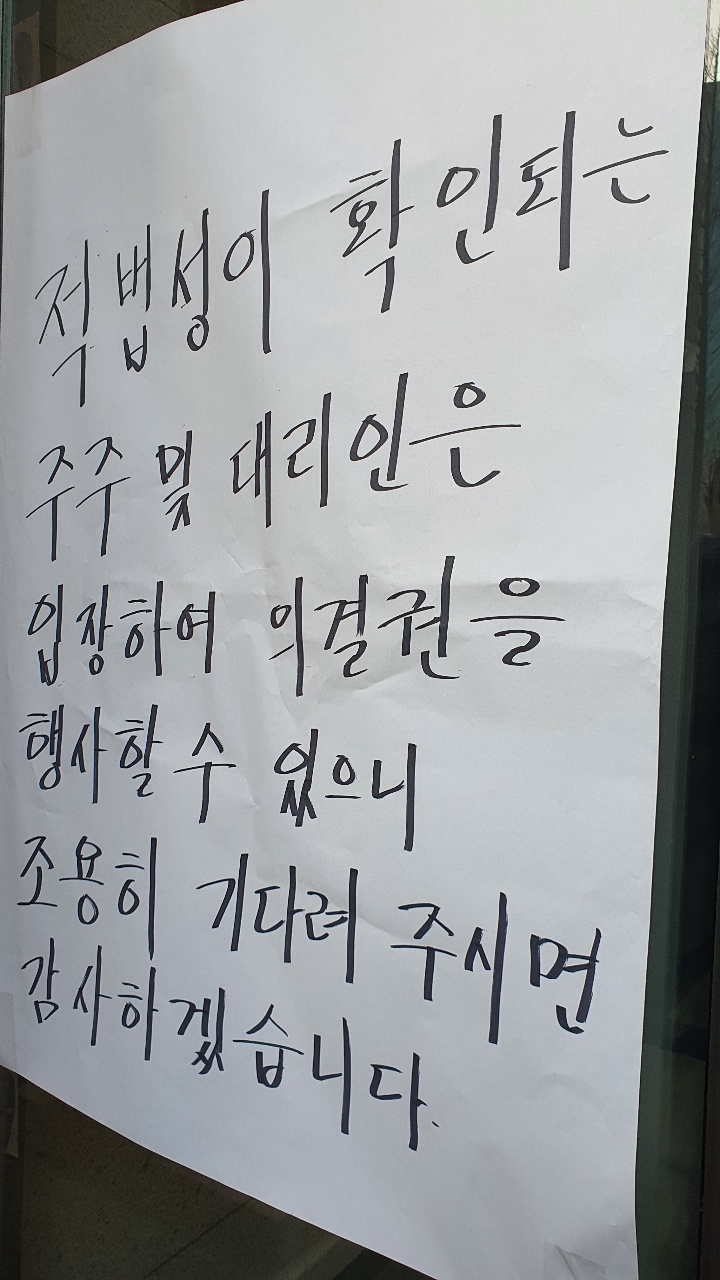 적법성이 확인되는
주주 및 대리인은
입장하여 의결권을
행사할 수 있으니
조용히 기다려 주시면
감사하겠습니다.